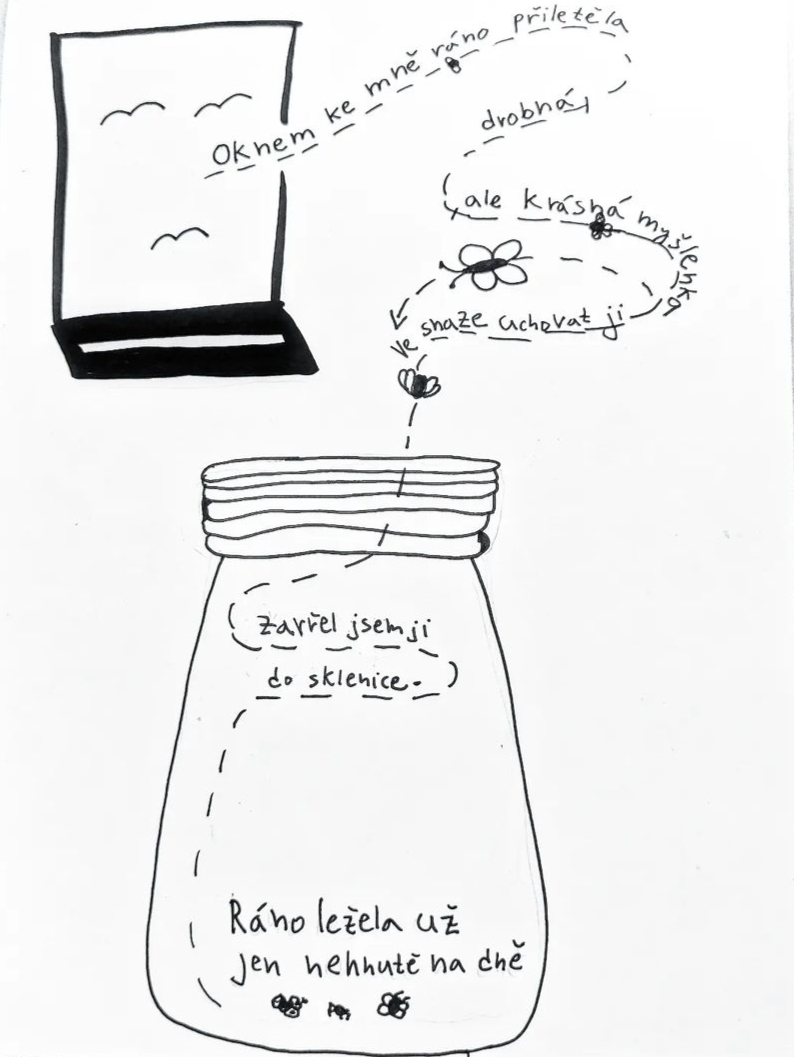 Oknem ke mně ráno přiletěla
drobná,
ale krásná myšlenka
ve snaze uchovat ji
zavřel jsem ji
do sklenice.
Ráno ležela už
jen nehnutě na dně